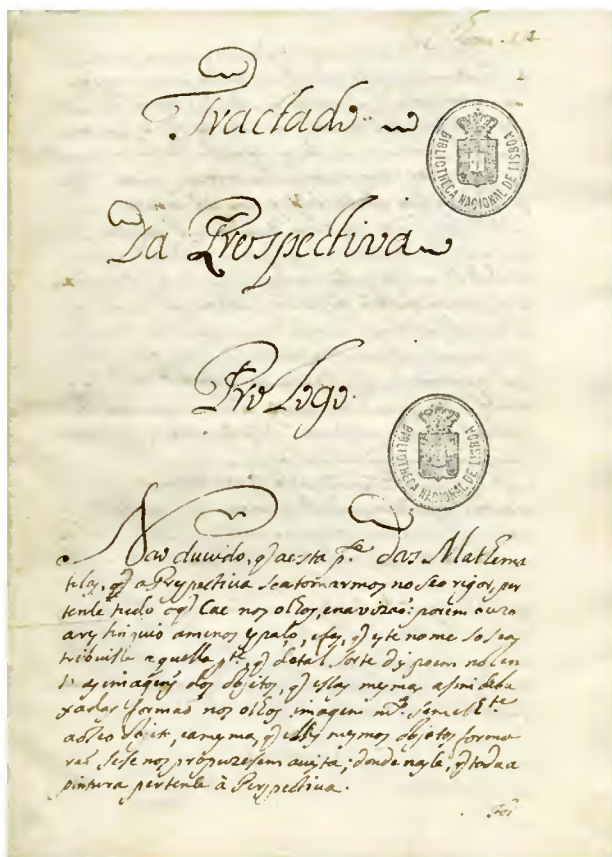 Tractado
Da Prospectiva
Prologo
BIBLIOTHECA NACIONAL DE LISBOA
BIBLIOTHECA NACIONAL DE LISBOA
Naõ duuido, q̃ aesta p.te das Mathema
ticas, q̃ a Perspectiva se a tomarmos no seo rigor, per
tence tudo o q̃ cae nos olhos, e na vizaõ: porem o uzo
a menos espaço, e fes, q̃ este nome so se a
tribuisse a quella p.te, q̃ de tal sorte dispoem
as imagens dos objetos, q̃ estas mesmas assim debu
xadas formaõ nos olhos imagem m.to semelh.te
ao seo objeto, e a mesma, q̃ os mesmos objetos forma
raõ se se nos propuzessem a vista; donde nasce, q̃ toda a
pintura pertence à Perspectiva.